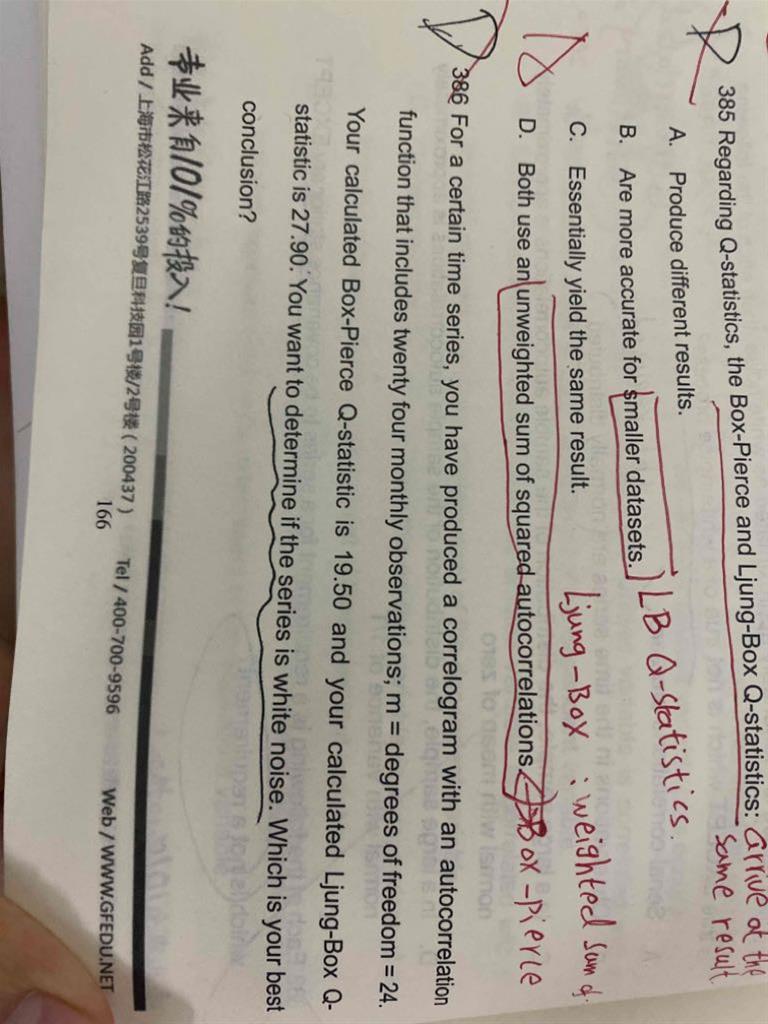 385 Regarding Q-statistics, the Box-Pierce and Ljung-Box Q-statistics:
arrive at the
same result
A. Produce different results.
B. Are more accurate for smaller datasets.
LB Q-statistics.
C. Essentially yield the same result.
Ljung-Box : weighted sum of
D. Both use an unweighted sum of squared autocorrelations
Box-pierce
386 For a certain time series, you have produced a correlogram with an autocorrelation
function that includes twenty four monthly observations; m = degrees of freedom = 24.
Your calculated Box-Pierce Q-statistic is 19.50 and your calculated Ljung-Box Q-
statistic is 27.90. You want to determine if the series is white noise. Which is your best
conclusion?
专业来自101%的投入!
Add / 上海市松花江路2539号复旦科技园1号楼/2号楼 ( 200437 ) Tel / 400-700-9596 Web / WWW.GFEDU.NET
166